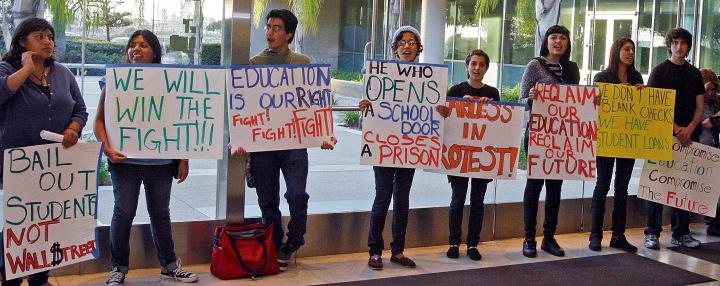 BAIL
OUT
STUDENTS
NOT
WALL $TREET
WE WILL
WIN THE
FIGHT!!!
EDUCATION
IS OUR RIGHT
FIGHT!
FIGHT! FIGHT!
HE WHO
OPENS
A SCHOOL
DOOR
CLOSES
A PRISON
IN
PROTEST!
RECLAIM
OUR
EDUCATION
RECLAIM
OUR
FUTURE
WE DON'T HAVE
BLANK CHECKS
WE HAVE
STUDENT LOANS
Compromise
Education
Compromise
The Future